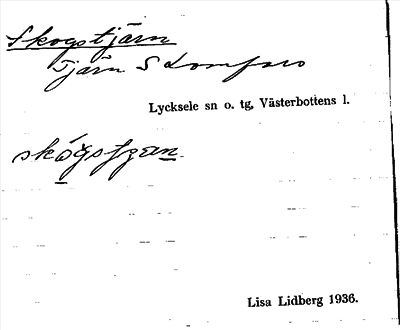 Skogstjärn
Tjärn S Lomfors
Lycksele sn o. tg, Västerbottens l.
skógstjæn
Lisa Lidberg 1936.